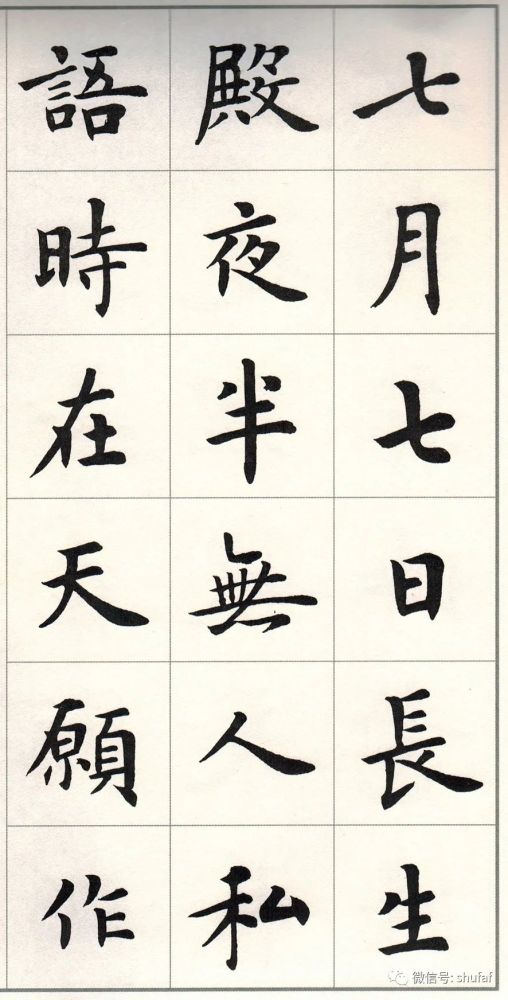 七月七日長生
殿夜半無人私
語時在天願作
微信号: shufaf